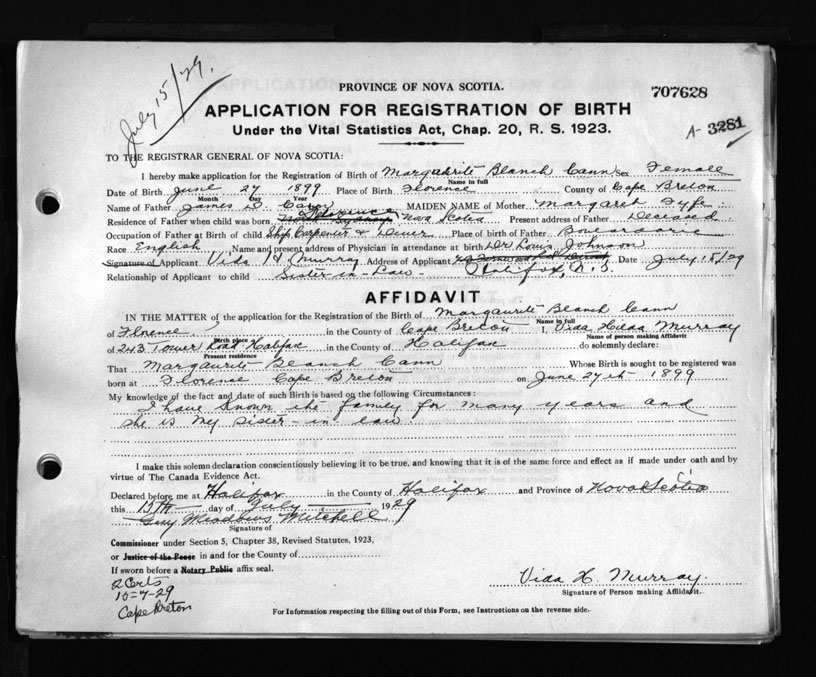 July 15/29.
PROVINCE OF NOVA SCOTIA.
707628
APPLICATION FOR REGISTRATION OF BIRTH
Under the Vital Statistics Act, Chap. 20, R. S. 1923.
A- 3281
TO THE REGISTRAR GENERAL OF NOVA SCOTIA:
I hereby make application for the Registration of Birth of Margaurite Blanch Cann Sex Female
Name in full
Date of Birth June 27 1899 Place of Birth Florence County of Cape Breton
Month Day Year
Name of Father James D. Cann MAIDEN NAME of Mother Margaret Fyfe
Residence of Father when child was born Florence Nova Scotia Present address of Father Deceased
Occupation of Father at Birth of child Ship Carpenter & Diver Place of birth of Father Boularderie
Race English Name and present address of Physician in attendance at birth Dr Louis Johnson
Signature of Applicant Vida H Murray Address of Applicant Halifax, N.S. Date July 15/29
Relationship of Applicant to child Sister in-Law-
AFFIDAVIT
IN THE MATTER of the application for the Registration of the Birth of Margaurite Blanch Cann
Name in full
of Florence, in the County of Cape Breton I, Vida Hilda Murray
Birth place Name of person making Affidavit
of 243 Tower Road Halifax in the County of Halifax do solemnly declare:
Present residence
That Margaurite Blanch Cann Whose Birth is sought to be registered was
born at Florence Cape Breton on June 27th - 1899
My knowledge of the fact and date of such Birth is based on the following Circumstances:
I have known the family for many years and
she is my sister-in-law.
I make this solemn declaration conscientiously believing it to be true, and knowing that it is of the same force and effect as if made under oath and by
virtue of The Canada Evidence Act.
Declared before me at Halifax in the County of Halifax and Province of Nova Scotia
this 15th day of July 1929
Guy Meadows Mitchell
Signature of
Commissioner under Section 5, Chapter 38, Revised Statutes, 1923,
or Justice of the Peace in and for the County of
If sworn before a Notary Public affix seal.
2 Certs
10-7-29
Cape Breton
Vida H. Murray.
Signature of Person making Affidavit.
For Information respecting the filling out of this Form, see Instructions on the reverse side.